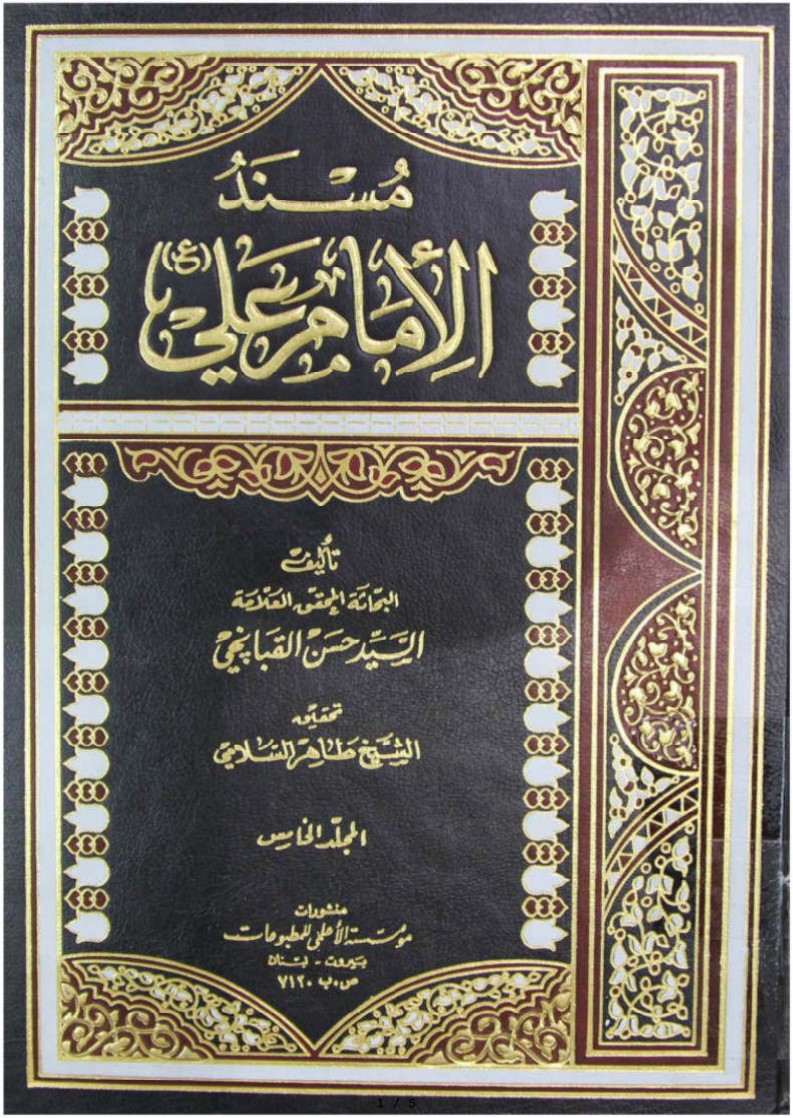 مُسْنَدُ
الإِمَامِ عَلي (ع)
تأليف
البحاثة المحقق العلامة
السَّيِّد حسَن القبَانجي
تحقيق
الشيخ طاهر السلامي
المجلد الخامس
منشورات
مؤسسة الأعلمي للمطبوعات
بيروت - لبنان
ص.ب ٧١٢٠
1 / 5